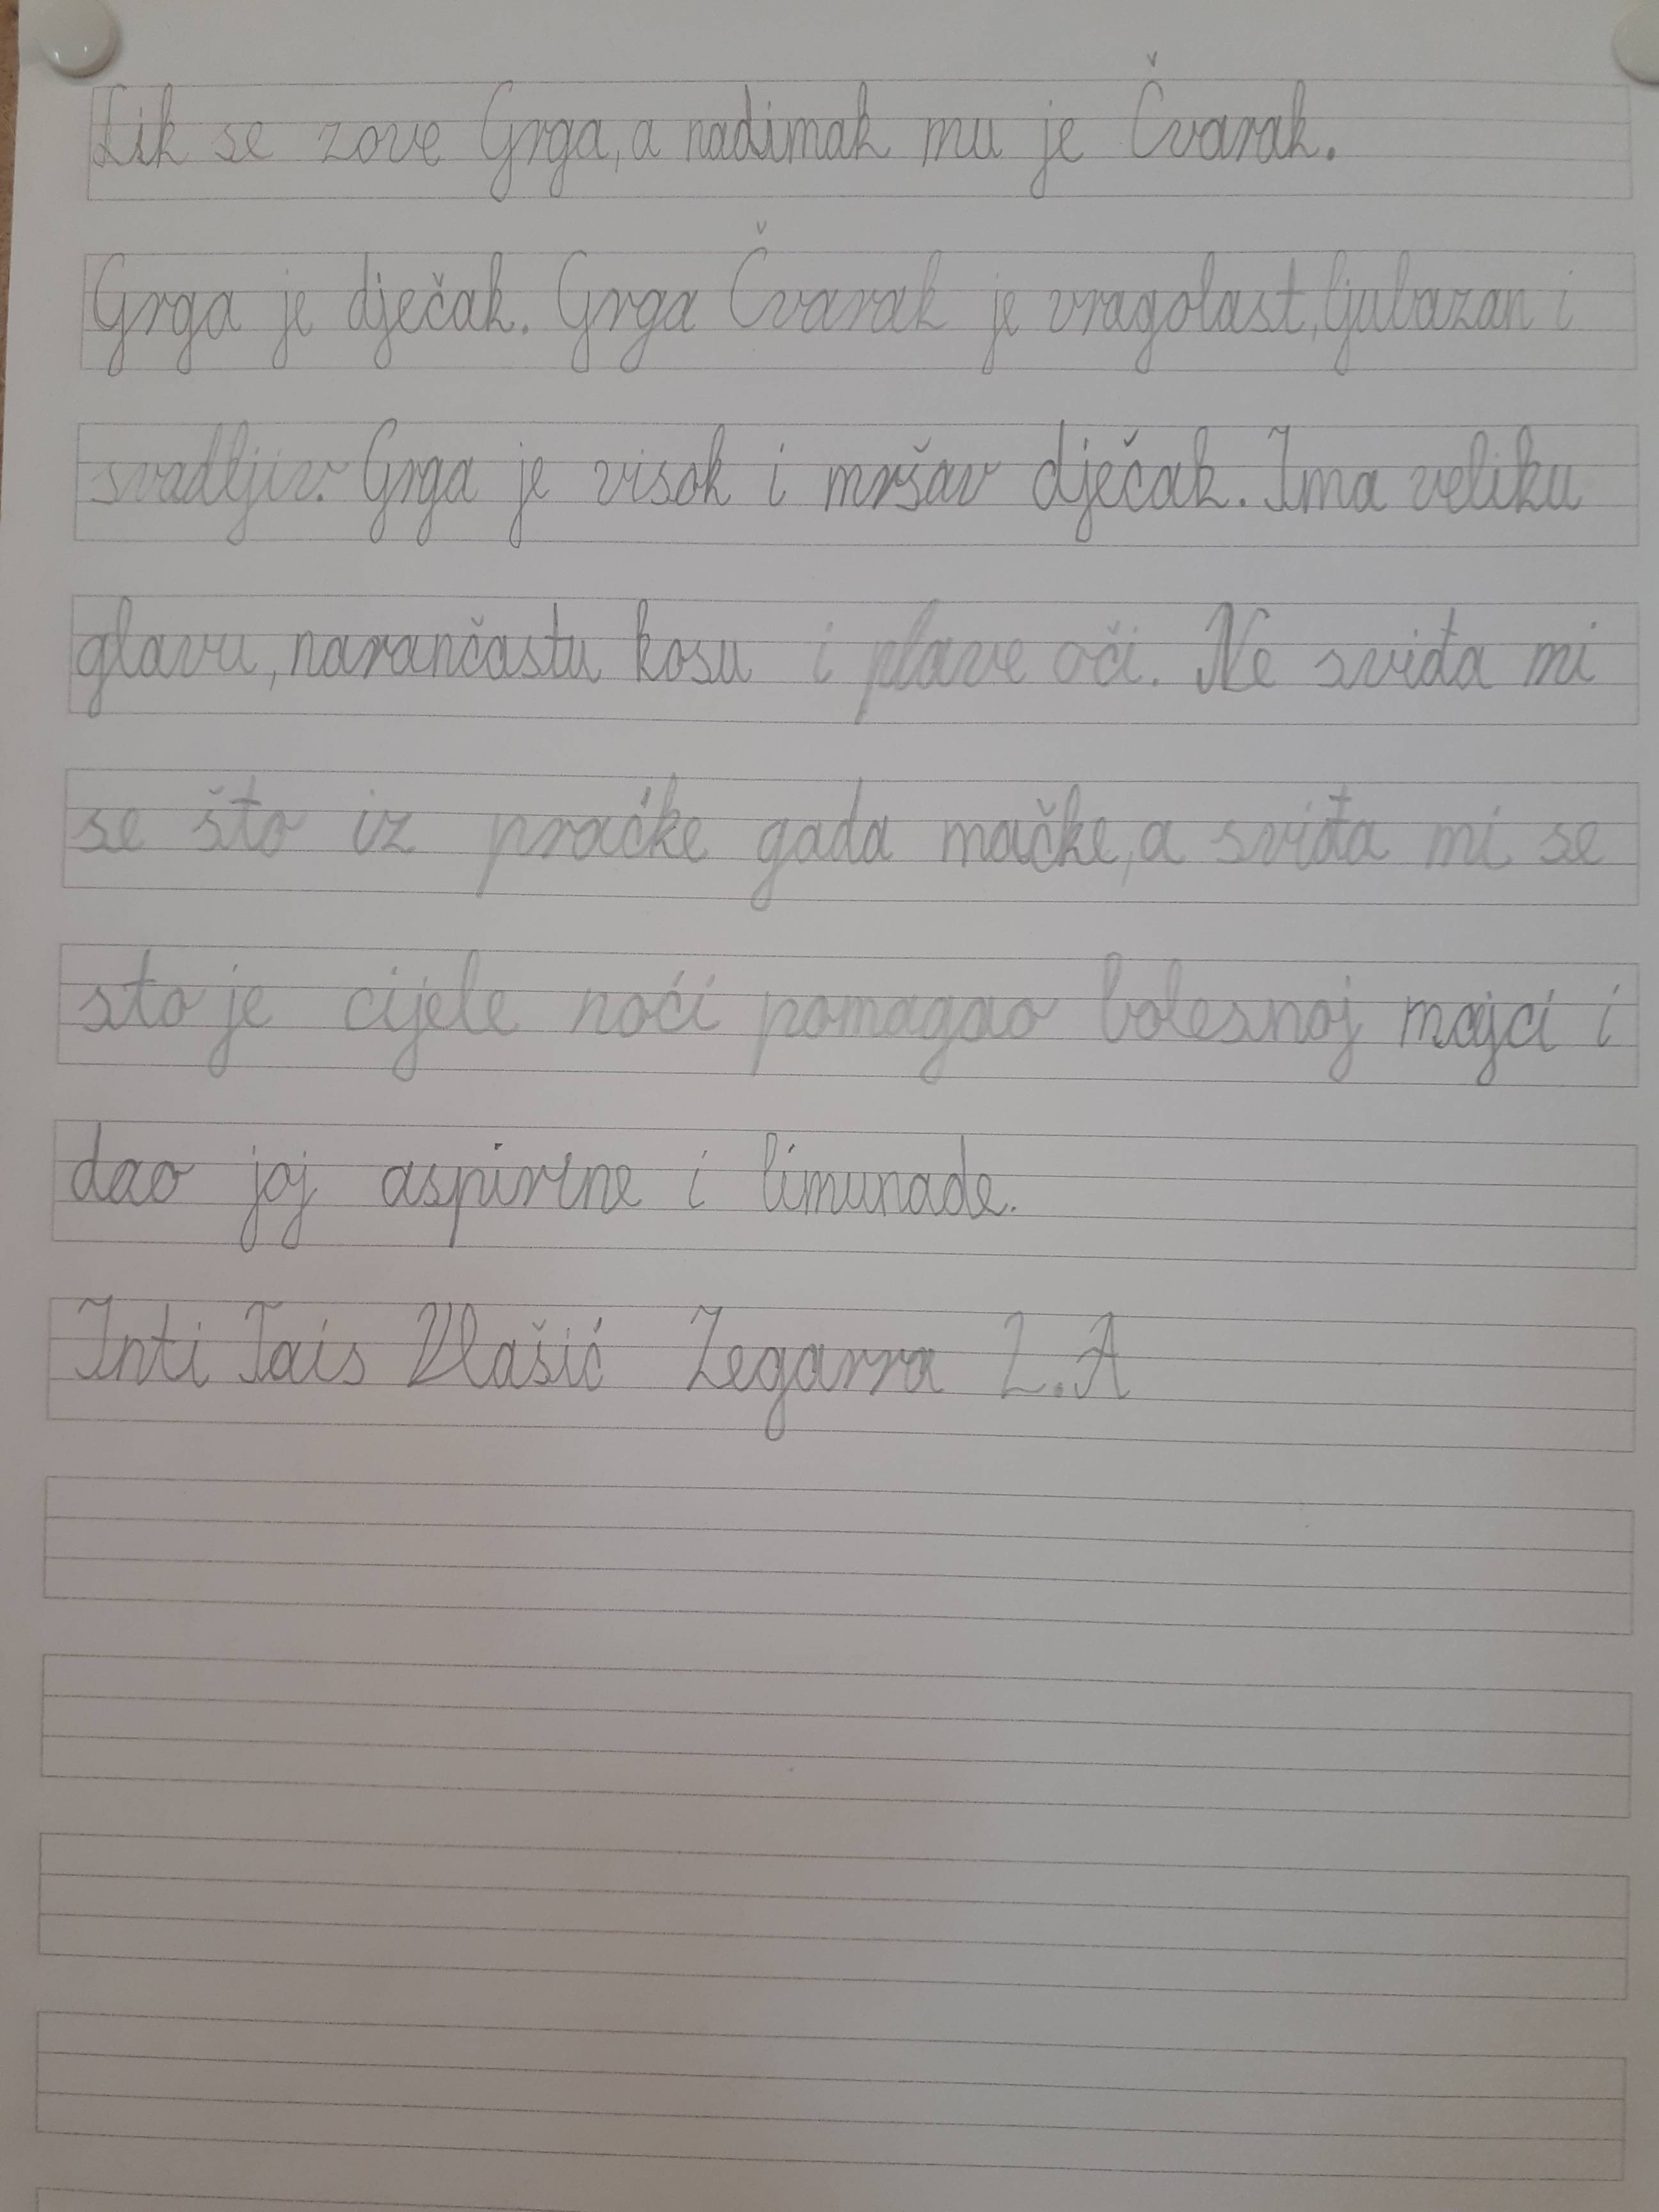 Lik se zove Grga, a nadimak mu je Čvarak.
Grga je dječak. Grga Čvarak je vragolast, ljubazan i
svadljiv. Grga je visok i mršav dječak. Ima veliku
glavu, narančastu kosu i plave oči. Ne sviđa mi
se što iz praćke gađa mačke, a sviđa mi se
sto je cijele noći pomagao bolesnoj majci i
dao joj aspirine i limunade.
Inti Tais Vlašić Zegarra 2.A